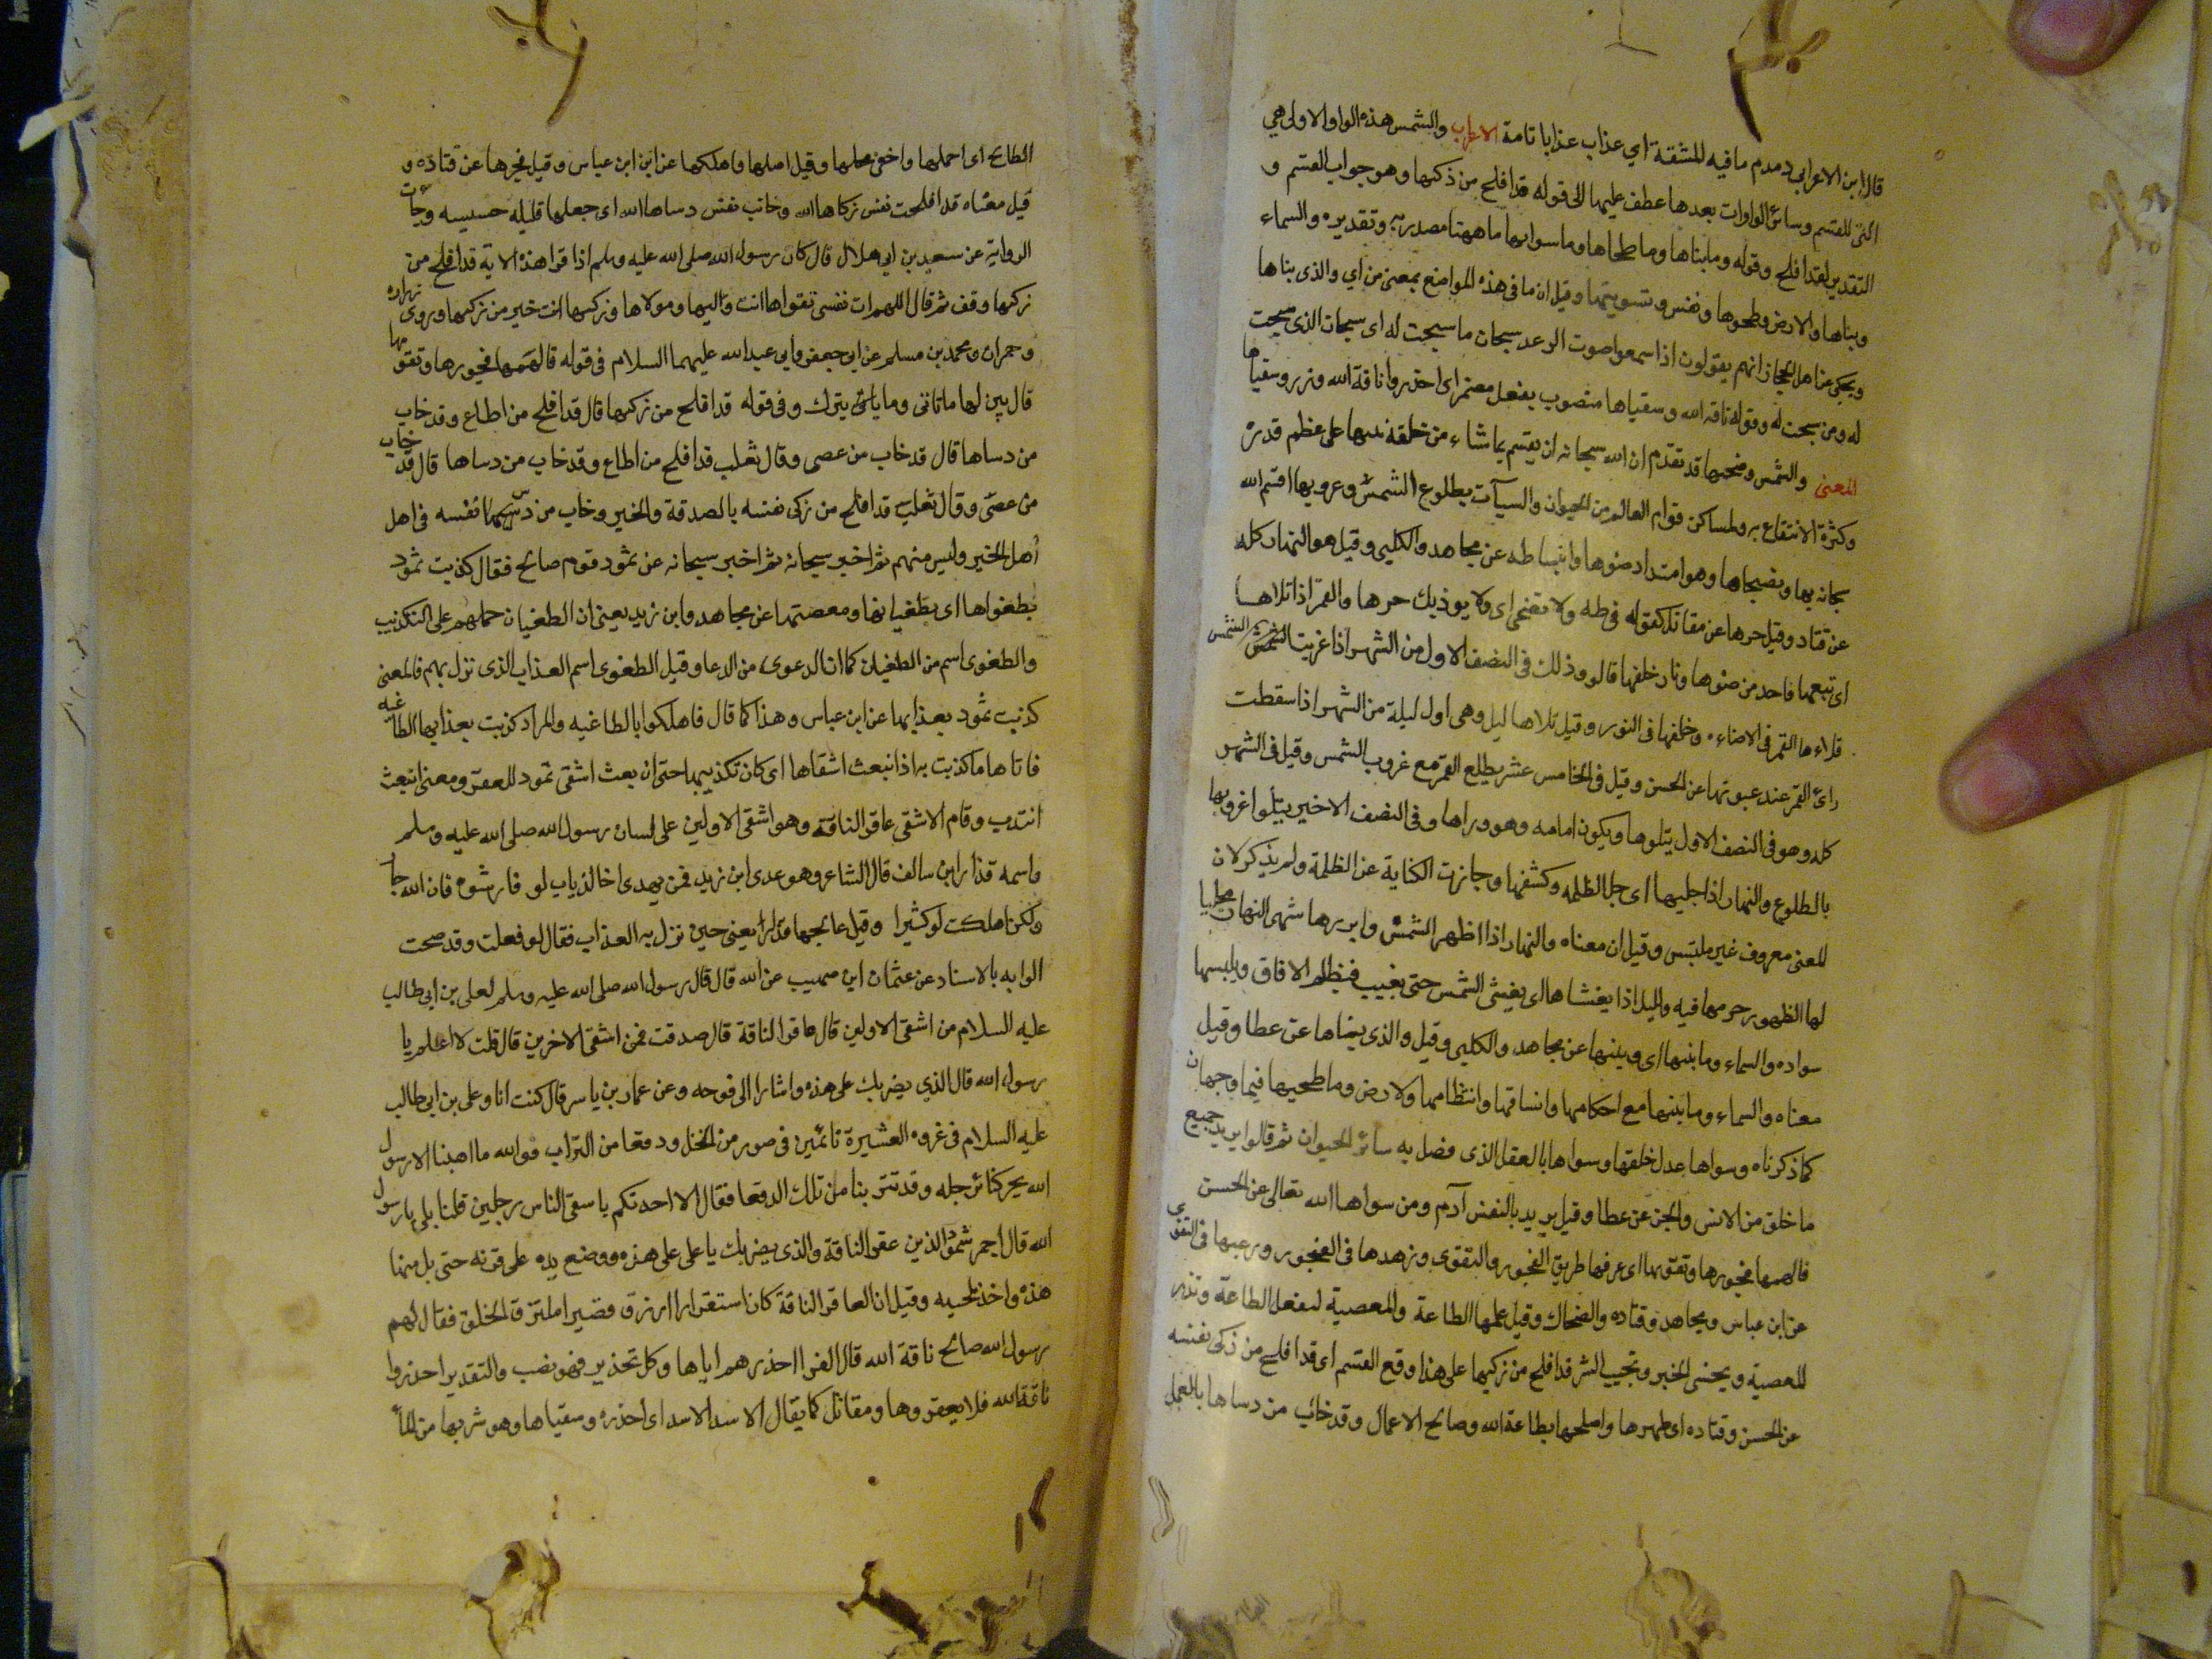 قال ابن الاعرابي دمدم ما فيه للمشقة اي عذاب عذابا تامة الاعراب والشمس هذه الواو الاولى هي
التى للقسم وسائر الواوات بعدها عطف عليها الى قوله قد افلح من زكيها وهو جواب القسم و
التقدير لقد افلح وقوله وما بناها وما طحاها وما سواها ما ههنا مصدريه وتقديره والسماء
وبناها والارض وطحوها ونفس وتسويتها وقيل ان ما فى هذه المواضع بمعنى من اي والذى بناها
ويحكى عن اهل الحجاز انهم يقولون اذا سمعوا صوت الرعد سبحان ما سبحت له اى سبحان الذى سبحت
له ومن سبحت له وقوله ناقه الله وسقياها منصوب بفعل مضمر اى احذروا ناقة الله وذروا سقياها
المعنى والشمس وضحيها قد تقدم ان الله سبحانه ان يقسم بما شاء من خلقه تنبيها على عظم قدره
وكثرة الانتفاع به ولما كن قوام العالم من الحيوان والنبات بطلوع الشمس وغروبها اقسم الله
سبحانه بها وبضحاها وهو امتداد ضوها وانبساطه عن مجاهد والكلبي وقيل هو النهار كله
عن قتاد وقيل حرها عن مقاتل كقوله فى طه ولا تضحى اى ولا يوذيك حرها والقمر اذا تلاها
اى تبعها فاخذ من ضوها وسار خلفها قالو وذلك فى النصف الاول من الشهر اذا غربت الشمس
تلاها القمر فى الاضاءه وخلفها فى النور وقيل تلاها ليل وهى اول ليلة من الشهر اذا سقطت
راى القمر عند غيبوبتها عن الحسن وقيل فى الخامس عشر يطلع القمر مع غروب الشمس وقيل فى الشهر
كله وهو فى النصف الاول يتلوها ويكون امامه وهو وراها وفى النصف الاخير يتلوا غروبها
بالطلوع والنهار اذا جليها اى جلا الظلمه وكشفها وجازت الكناية عن الظلمة ولم يذكر لان
المعنى معروف غير ملتبس وقيل ان معناه والنهار اذا اظهر الشمس وابرزها سمى النهار مجليا
لها لظهور جرمها فيه والليل اذا يغشاها اى يغشى الشمس حتى تغيب فيظلم الافاق ويلبسها
سواده والسماء وما بنيها اى وبنيها عن مجاهد والكلبي وقيل والذى بناها عن عطا وقيل
معناه والسماء وما بنيها مع احكامها واتساقها وانتظامها ولارض وما طحيها فيما وجهان
كما ذكرناه وسواها عدل خلقها وسواها بالعقل الذى فضل به سائر الحيوان ثم قالوا يريد جميع
ما خلق من الانس والجن عن عطا وقيل يريد بالنفس آدم ومن سواها الله تعالى عن الحسن
فالهمها فجورها وتقويها اى عرفها طريق الفجور والتقوى وزهدها فى الفجور ورغبها فى التقوى
عن ابن عباس ومجاهد وقتاده والضحاك وقيل علمها الطاعة والمعصية لتفعل الطاعة وتذر
المعصية ويجنى الخير وتجنب الشر قد افلح من زكيها على هذا وقع القسم اى قد افلح من زكى نفسه
عن الحسن وقتاده اى طهرها واصلحها بطاعة الله وصالح الاعمال وقد خاب من دساها بالعمل
الطالح اى احملها واخفى محلها وقيل اضلها واهلكها عن ابن ابن عباس وقيل فجرها عن قتاده و
قيل معناه قد افلحت نفس زكاها الله وخابت نفس دساها الله اى جعلها قليله خسيسه وجات
الرواية عن سعيد بن ابى هلال قال كان رسول الله صلى الله عليه وسلم اذا قرا هذه الاية قد افلح من
زكيها وقف ثم قال اللهم ات نفسى تقواها انت وليها ومولاها وزكيها انت خير من زكيها وروى زراره
وحمران ومحمد بن مسلم عن ابى جعفر وابى عبد الله عليهما السلام فى قوله فالهمها فجورها وتقوها
قال بين لها ما تاتى وما تترك وفى قوله قد افلح من زكيها قال قد افلح من اطاع وقد خاب
من دساها قال قد خاب من عصى وقال ثعلب قد افلح من اطاع وقد خاب من دساها قال قد خاب
من عصى وقال ثعلب قد افلح من زكى نفسه بالصدقة والخير وخاب من دس نفسه فى اهل
اهل الخير وليس منهم ثم اخبر سبحانه ثم اخبر سبحانه عن ثمود قوم صالح فقال كذبت ثمود
بطغواها اى بطغيانها ومعصيتها عن مجاهد وابن زيد يعنى ان الطغيان حملهم على التكذيب
والطغوى اسم من الطغيان كما ان الدعوى من الدعا وقيل الطغوى اسم العذاب الذى نزل بهم فالمعنى
كذبت ثمود بعذابها عن ابن عباس وهذا كما قال فاهلكوا بالطاغيه والمراد كذبت بعذابها الطاغيه
فاتاها ما كذبت به اذ انبعث اشقاها اى كان تكذيبها حتى ان بعث اشقى ثمود للعقر ومعنى انبعث
انتدب وقام الاشقى عاقر الناقه وهو اشقى الاولين على لسان رسول الله صلى الله عليه وسلم
واسمه قذار ابن سالف قال الشاعر وهو عدى ابن زيد فمن يهدى اخا لذناب لو فارشوه فان الله جا
ولكن اهلكت لو كثيرا وقيل عالجها قدار يعنى حين نزل به العذاب فقال لو فعلت وقد صحت
الروايه بالاسناد عن عثمان ابن صهيب عن الله قال قال رسول الله صلى الله عليه وسلم لعلى بن ابى طالب
عليه السلام من اشقى الاولين قال عاقر الناقة قال صدقت فمن اشقى الاخرين قال قلت لا اعلم يا
رسول الله قال الذي يضربك على هذه واشارا الى فوحه وعن عمار بن ياسر قال كنت انا وعلى بن ابى طالب
عليه السلام فى غزوه العشيرة نائمين فى صور من النخل ودقعا من التراب فوالله ما اهبنا الا رسول
الله يحركنا برجله وقد تتربنا من تلك الدقعا فقال الا احدثكم باشقى الناس رجلين قلنا بلى يارسول
الله قال احمر ثمود الذين عقر الناقة والذى يضربك يا على على هذه ووضع يده على قرنه حتى بل منها
هذه واخذ بلحيه وقيل ان العاقر الناقة كان اشقر ازرق قصيرا ملتزق الخلق فقال لهم
رسول الله صالح ناقة الله قال الفرا احذرهم اياها وكل تحذير فهو نصب والتقدير احذروا
ناقة الله فلا تعقروها ومقاتل كما يقال الاسد الاسد اى احذره وسقياها وهو شربها من الماء